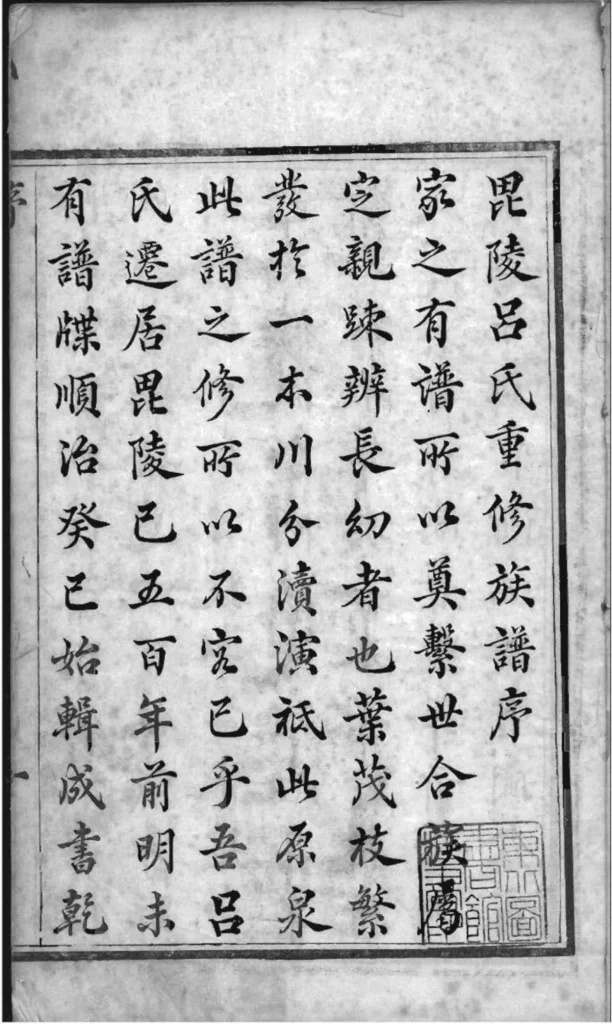 毘陵呂氏重修族譜序
家之有譜所以奠繫世合族屬
定親踈辨長幼者也葉茂枝繁
發於一本川分瀆演祗此原泉
此譜之修所以不容已乎吾呂
氏遷居毘陵已五百年前明未
有譜牒順治癸巳始輯成書乾
序
一